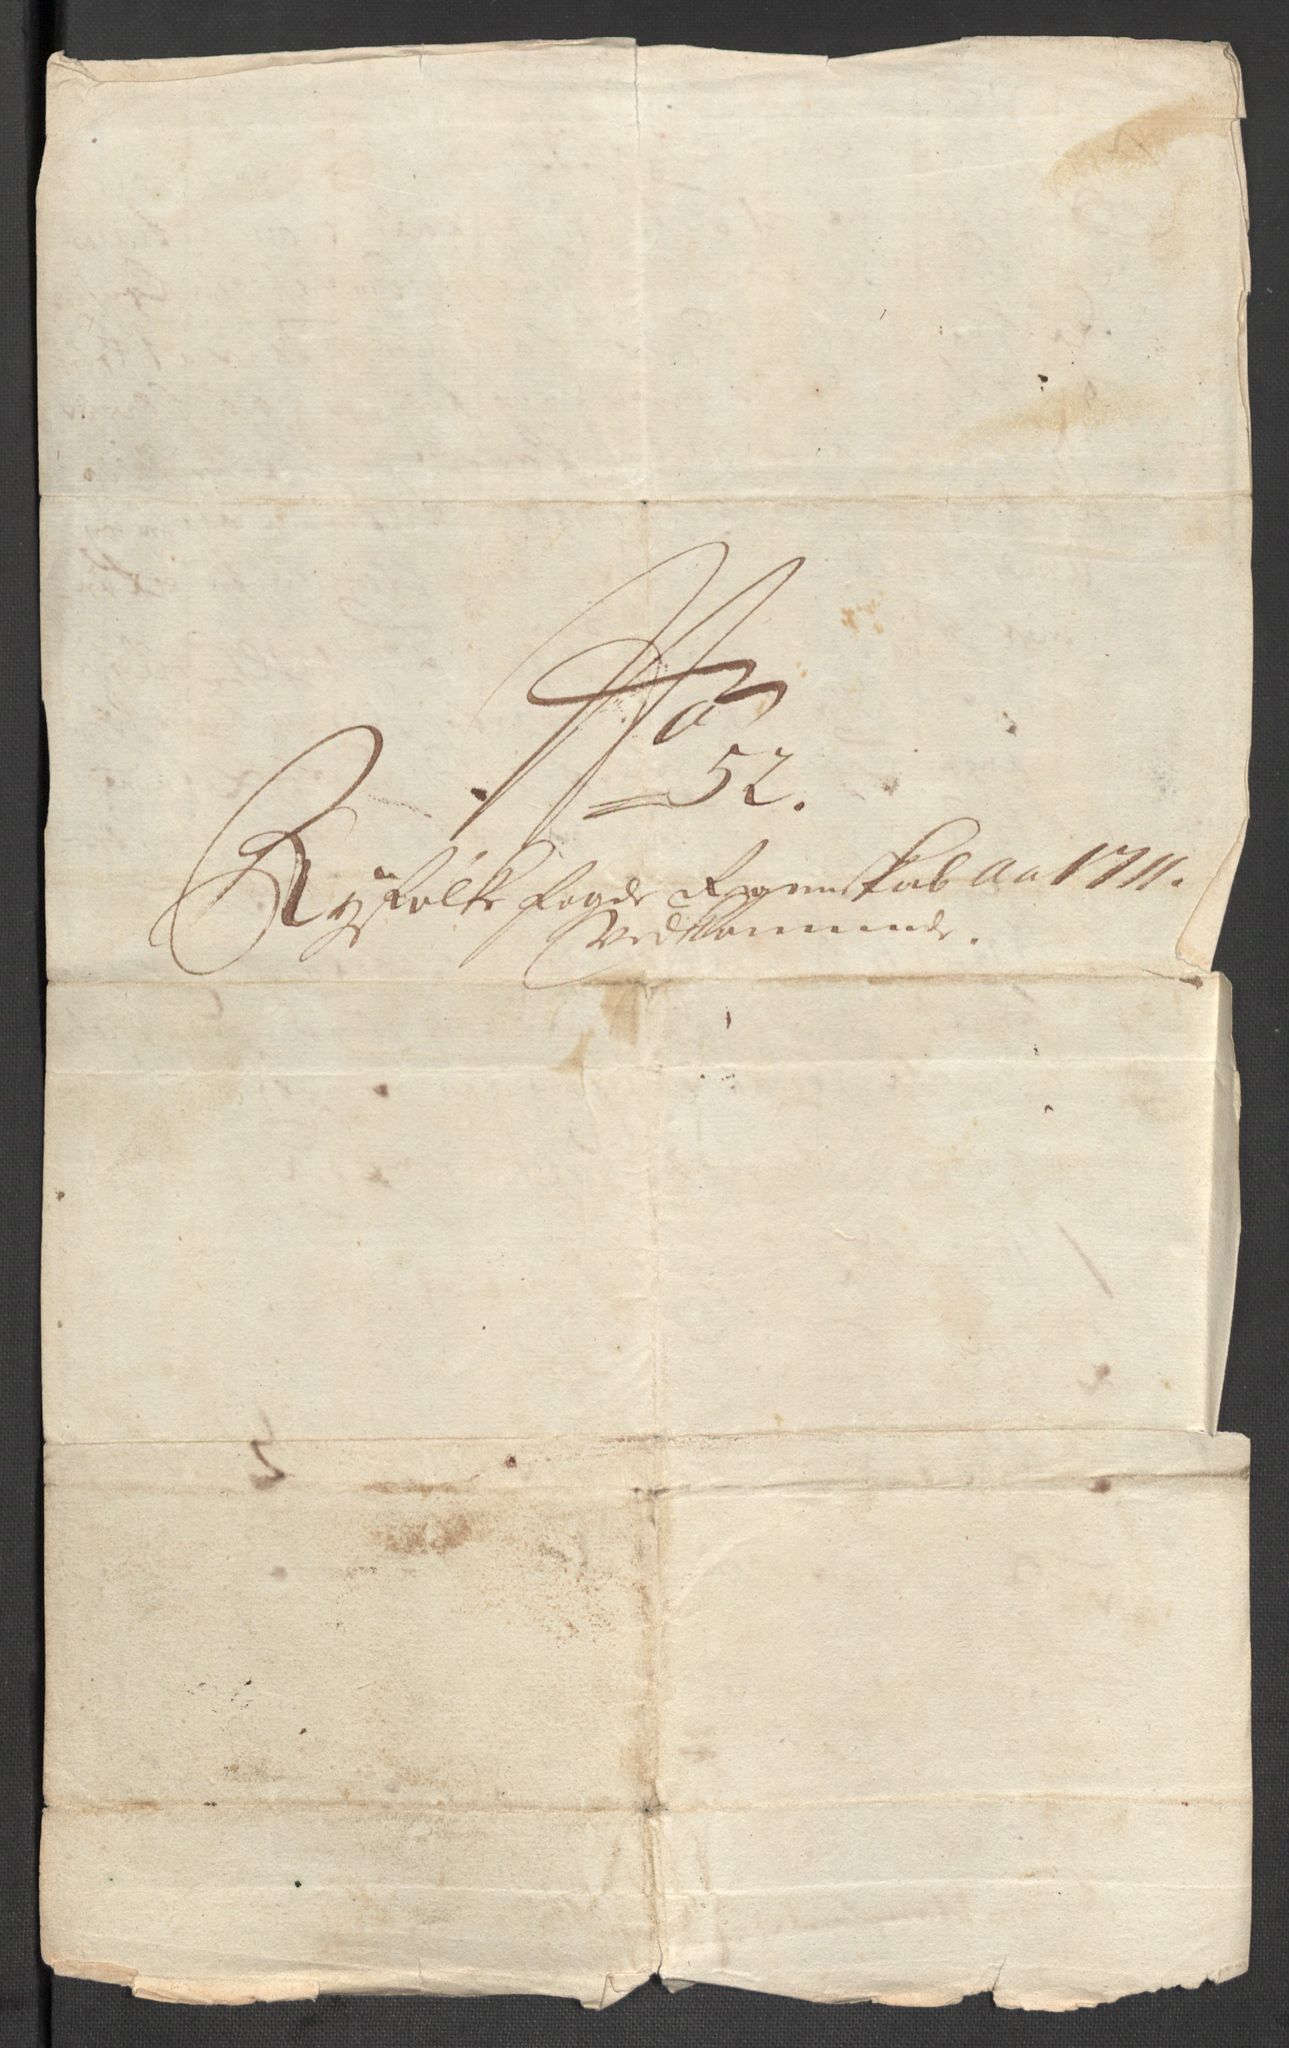 No
52.
Ryfølke fogde Regnnskab Ao 1711.
Vedkommende.